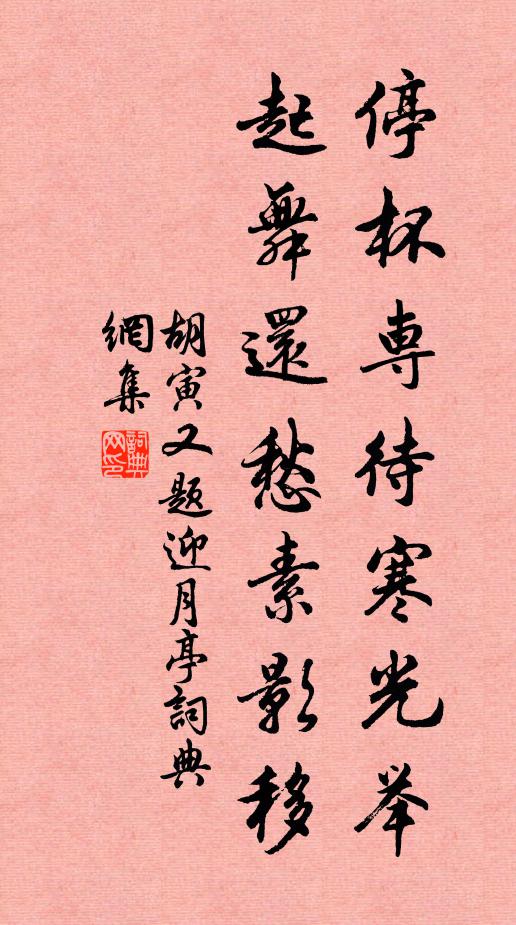 停杯専待寒光举
起舞還愁素影移
胡寅又题迎月亭詞典
網集
詞典
网印